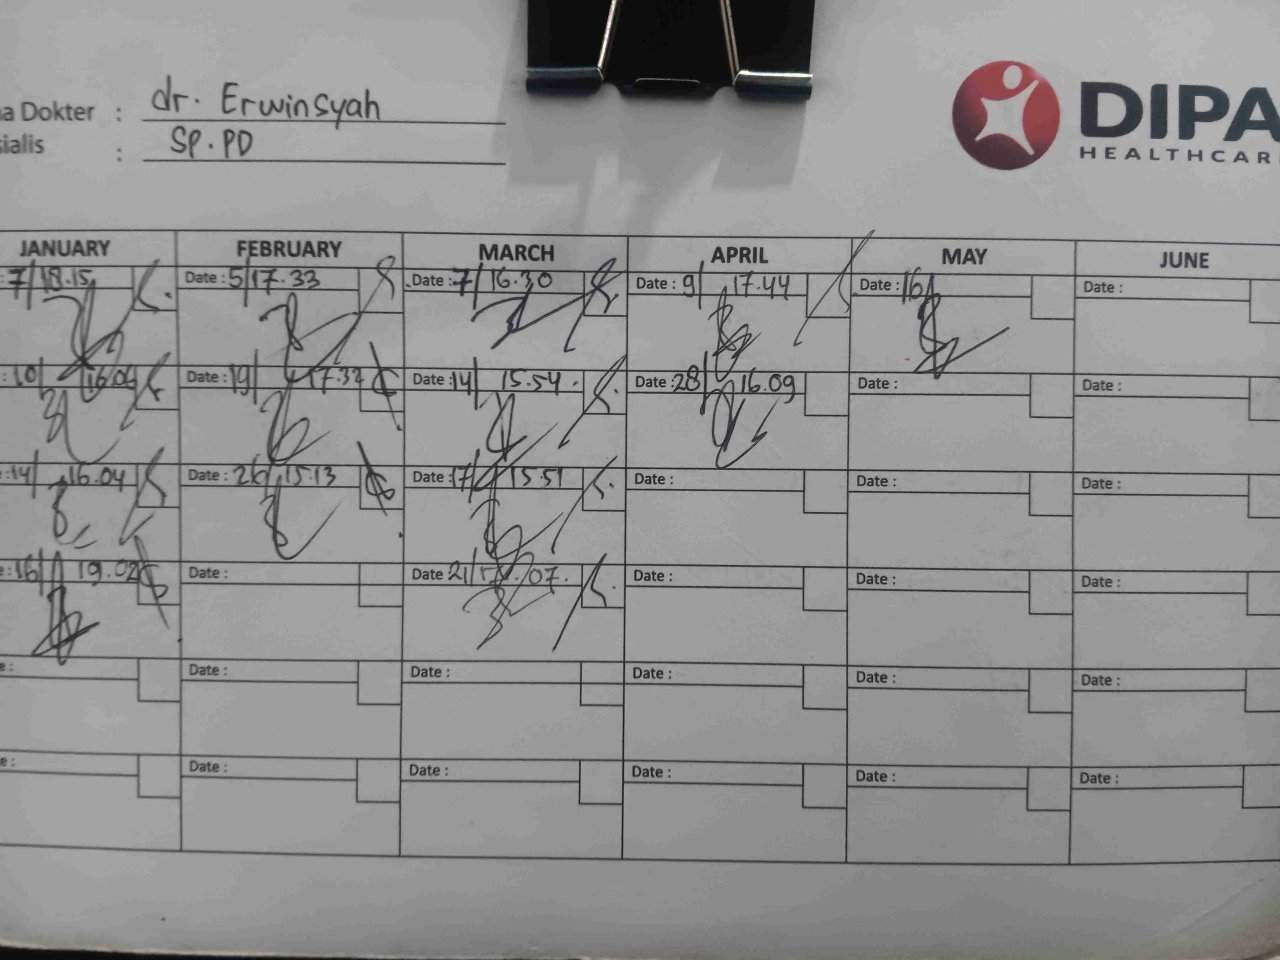 a Dokter : dr. Erwinsyah
ialis : SP.PD
DIPA
HEALTHCAR
JANUARY FEBRUARY MARCH APRIL MAY JUNE
: 7/ 18.15 Date : 5/17.33 Date : 7/ 16.30 Date : 9/ 17.44 Date : 16/ Date :
: 10/ 16.04 Date : 19/ 17.32 Date : 14/ 15.54 Date : 28/ 16.09 Date : Date :
e : 14/ 16.04 Date : 26/ 15.13 Date : 17/ 15.51 Date : Date : Date :
e : 16/ 19.02 Date : Date : 21/ .07 Date : Date : Date :
e : Date : Date : Date : Date : Date :
e : Date : Date : Date : Date : Date :